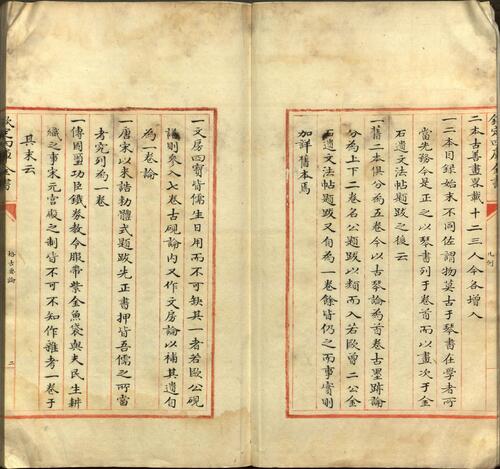 欽定四庫全書
凡例
二本古善畫畧載十二三人今各增入
一二本目録始末不同佐謂物莫古于琴書在學者所
當先務今是正之以琴書列于卷首而以畫次于金
石遺文法帖題跋之後云
一舊二本俱分為五卷今以古琴論為首卷古墨跡論
分為上下二卷名公題跋以類而入若歐曾二公金
石遺文法帖題跋又自為一卷餘皆仍之而事實則
加詳舊本焉
一文房四寶皆儒生日用而不可缺其一者若歐公硯
譜則參入七卷古硯論內又作文房論以補其遺自
為一卷論
一唐宋以來誥勅體式題跋先正書押皆吾儒之所當
考究列為一卷
一傳國璽功臣鐵券敕令服帶紫金魚袋與夫民生耕
織之事宋元宫殿之制皆不可不知作雜考一卷于
其末云
欽定四庫全書
格古要論
二